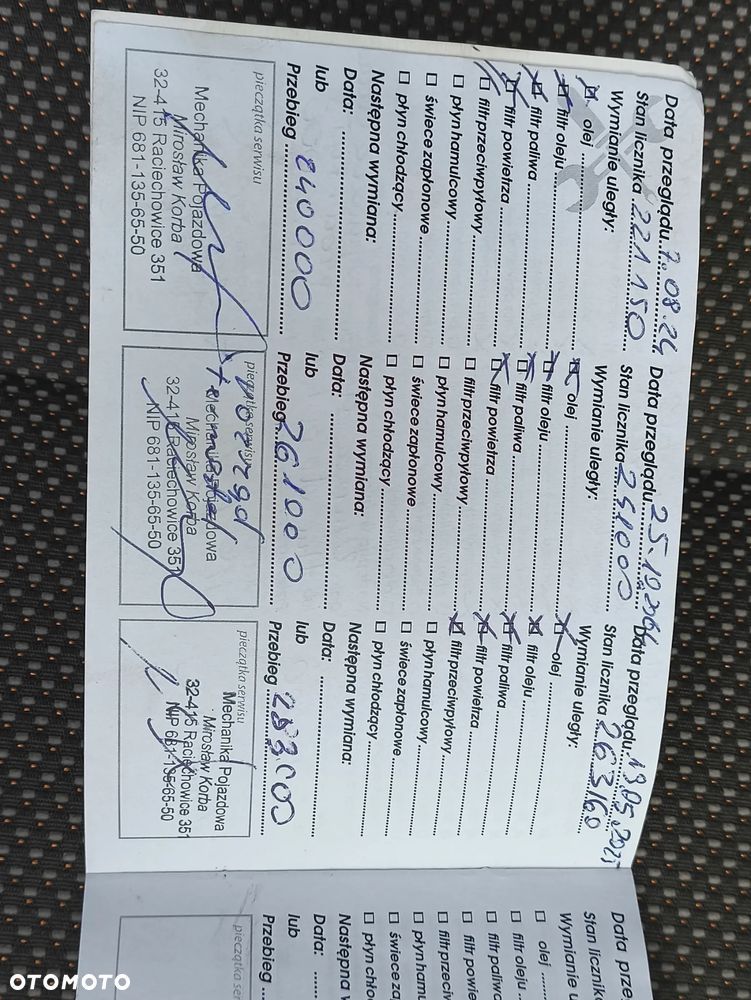 Data przeglądu 7.08.24
Stan licznika 221150
Wymianie uległy:
olej
filtr oleju
filtr paliwa
filtr powietrza
filtr przeciwpyłowy
płyn hamulcowy
świece zapłonowe
płyn chłodzący
Następna wymiana:
Data:
lub
Przebieg 240000
pieczątka serwisu
Mechanika Pojazdowa
Mirosław Korba
32-415 Raciechowice 351
NIP 681-135-65-50
Data przeglądu 25.10.2024
Stan licznika 241000
Wymianie uległy:
olej
filtr oleju
filtr paliwa
filtr powietrza
filtr przeciwpyłowy
płyn hamulcowy
świece zapłonowe
płyn chłodzący
Następna wymiana:
Data:
lub
Przebieg 261000
pieczątka serwisu
Mechanika Pojazdowa
Mirosław Korba
32-415 Raciechowice 351
NIP 681-135-65-50
Data przeglądu: 19.05.2025
Stan licznika 263160
Wymianie uległy:
olej
filtr oleju
filtr paliwa
filtr powietrza
filtr przeciwpyłowy
płyn hamulcowy
świece zapłonowe
płyn chłodzący
Następna wymiana:
Data:
lub
Przebieg 283000
pieczątka serwisu
Mechanika Pojazdowa
Mirosław Korba
32-415 Raciechowice 351
NIP 681-135-65-50
Data prze
Stan liczni
Wymianie u
olej
filtr oleju
filtr paliwa
filtr powie
filtr przeci
płyn hamu
świece za
płyn chło
Następna w
Data:
lub
Przebieg
pieczątka se
OTOMOTO